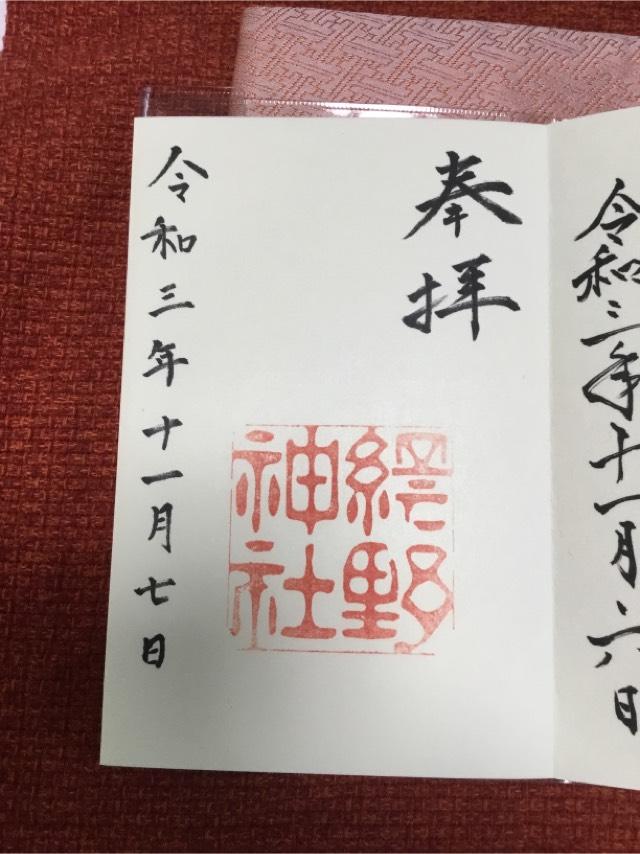 令和三年十一月六日
奉拝
網野
神社
令和三年十一月七日